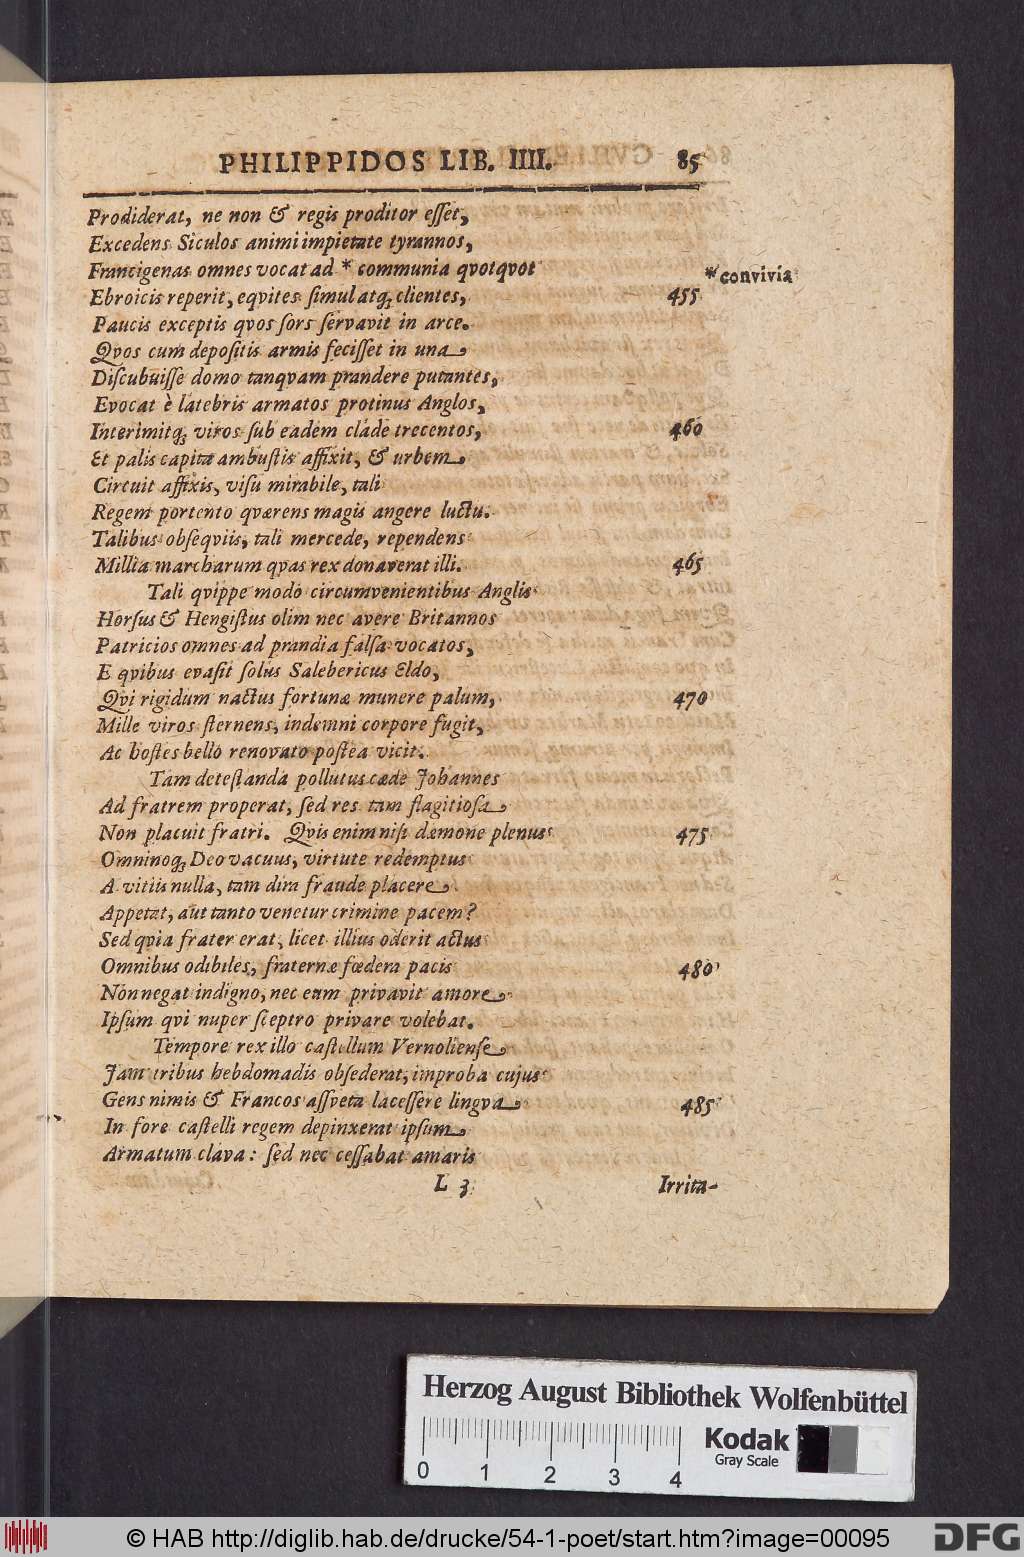 PHILIPPIDOS LIB. IIII. 85
Prodiderat, ne non & regis proditor esset,
Excedens Siculos animi impietate tyrannos,
Francigenas omnes vocat ad * communia qvotqvot *convivia
Ebroicis reperit, eqvites simul atq; clientes, 455
Paucis exceptis qvos sors servavit in arce.
Qvos cum depositis armis fecisset in una
Discubuisse domo tanqvam prandere putantes,
Evocat è latebris armatos protinus Anglos,
Interimitq; viros sub eadem clade trecentos, 460
Et palis capita ambustis affixit, & urbem
Circuit affixis, visu mirabile, tali
Regem portento qværens magis angere luctu.
Talibus obseqviis, tali mercede, rependens
Millia marcharum qvas rex donaverat illi. 465
Tali qvippe modo circumvenientibus Anglis
Horsus & Hengistus olim nec avere Britannos
Patricios omnes ad prandia falsa vocatos,
E qvibus evasit solus Salebericus Eldo,
Qvi rigidum nactus fortunæ munere palum, 470
Mille viros sternens, indemni corpore fugit,
Ac hostes bello renovato postea vicit.
Tam detestanda pollutus cæde Johannes
Ad fratrem properat, sed res tam flagitiosa
Non placuit fratri. Qvis enim nisi dæmone plenus 475
Omninoq; Deo vacuus, virtute redemptus
A vitiis nulla, tam dira fraude placere
Appetat, aut tanto venetur crimine pacem?
Sed qvia frater erat, licet illius oderit actus
Omnibus odibiles, fraternæ fœdera pacis 480
Non negat indigno, nec eum privavit amore
Ipsum qvi nuper sceptro privare volebat.
Tempore rex illo castellum Vernoliense
Jam tribus hebdomadis obsederat, improba cujus
Gens nimis & Francos assveta lacessere lingva 485
In fore castelli regem depinxerat ipsum
Armatum clava: sed nec cessabat amaris
L 3 Irrita-
Herzog August Bibliothek Wolfenbüttel
Kodak
Gray Scale
0 1 2 3 4
© HAB http://diglib.hab.de/drucke/54-1-poet/start.htm?image=00095
DFG